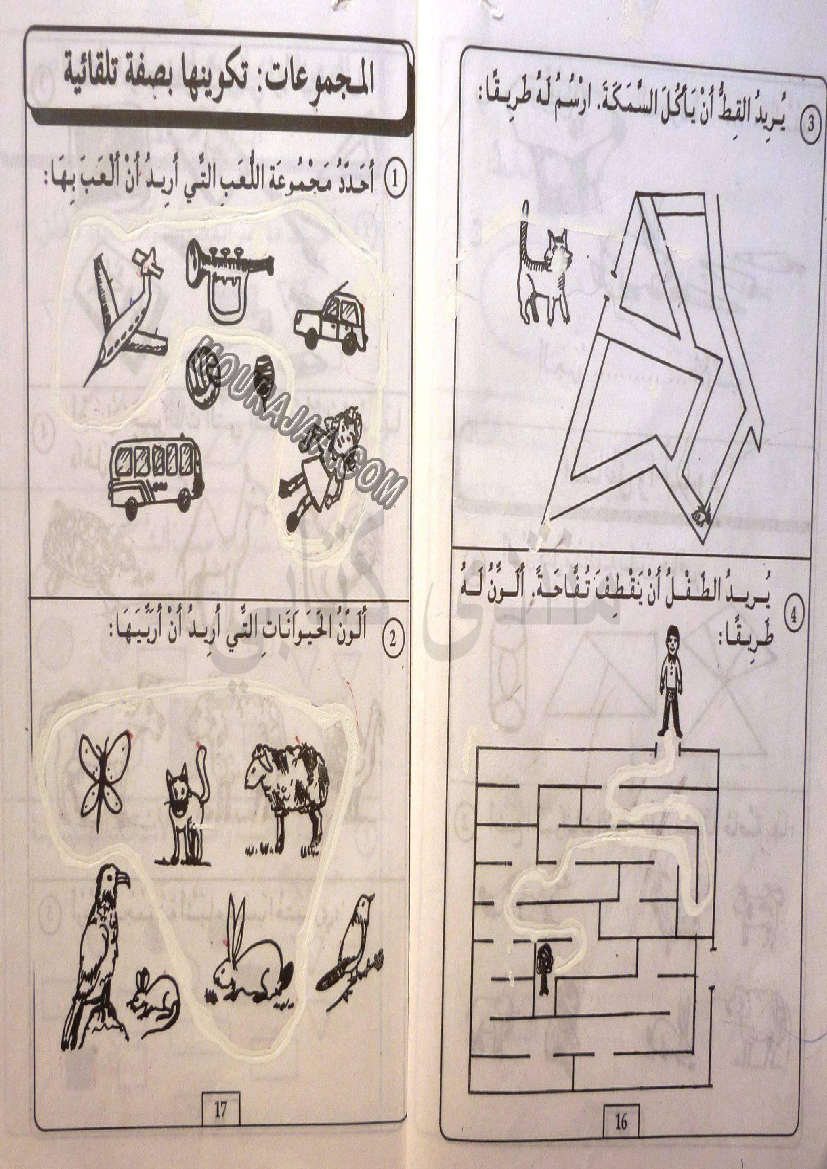 3 يُرِيدُ القِطُّ أَنْ يَأْكُلَ السَّمَكَةَ. ارْسُمْ لَهُ طَرِيقًا:
4 يُرِيدُ الطِّفْلُ أَنْ يَقْطِفَ تُفَّاحَةً. أُلَوِّنُ لَهُ
طَرِيقًا:
16
المجموعات: تكوينها بصفة تلقائية
1 أُحَدِّدُ مَجْمُوعَةَ اللُّعَبِ الَّتِي أُرِيدُ أَنْ أَلْعَبَ بِهَا:
2 أُلَوِّنُ الحَيَوَانَاتِ الَّتِي أُرِيدُ أَنْ أُرَبِّيَهَا:
17
منتدى كتابي